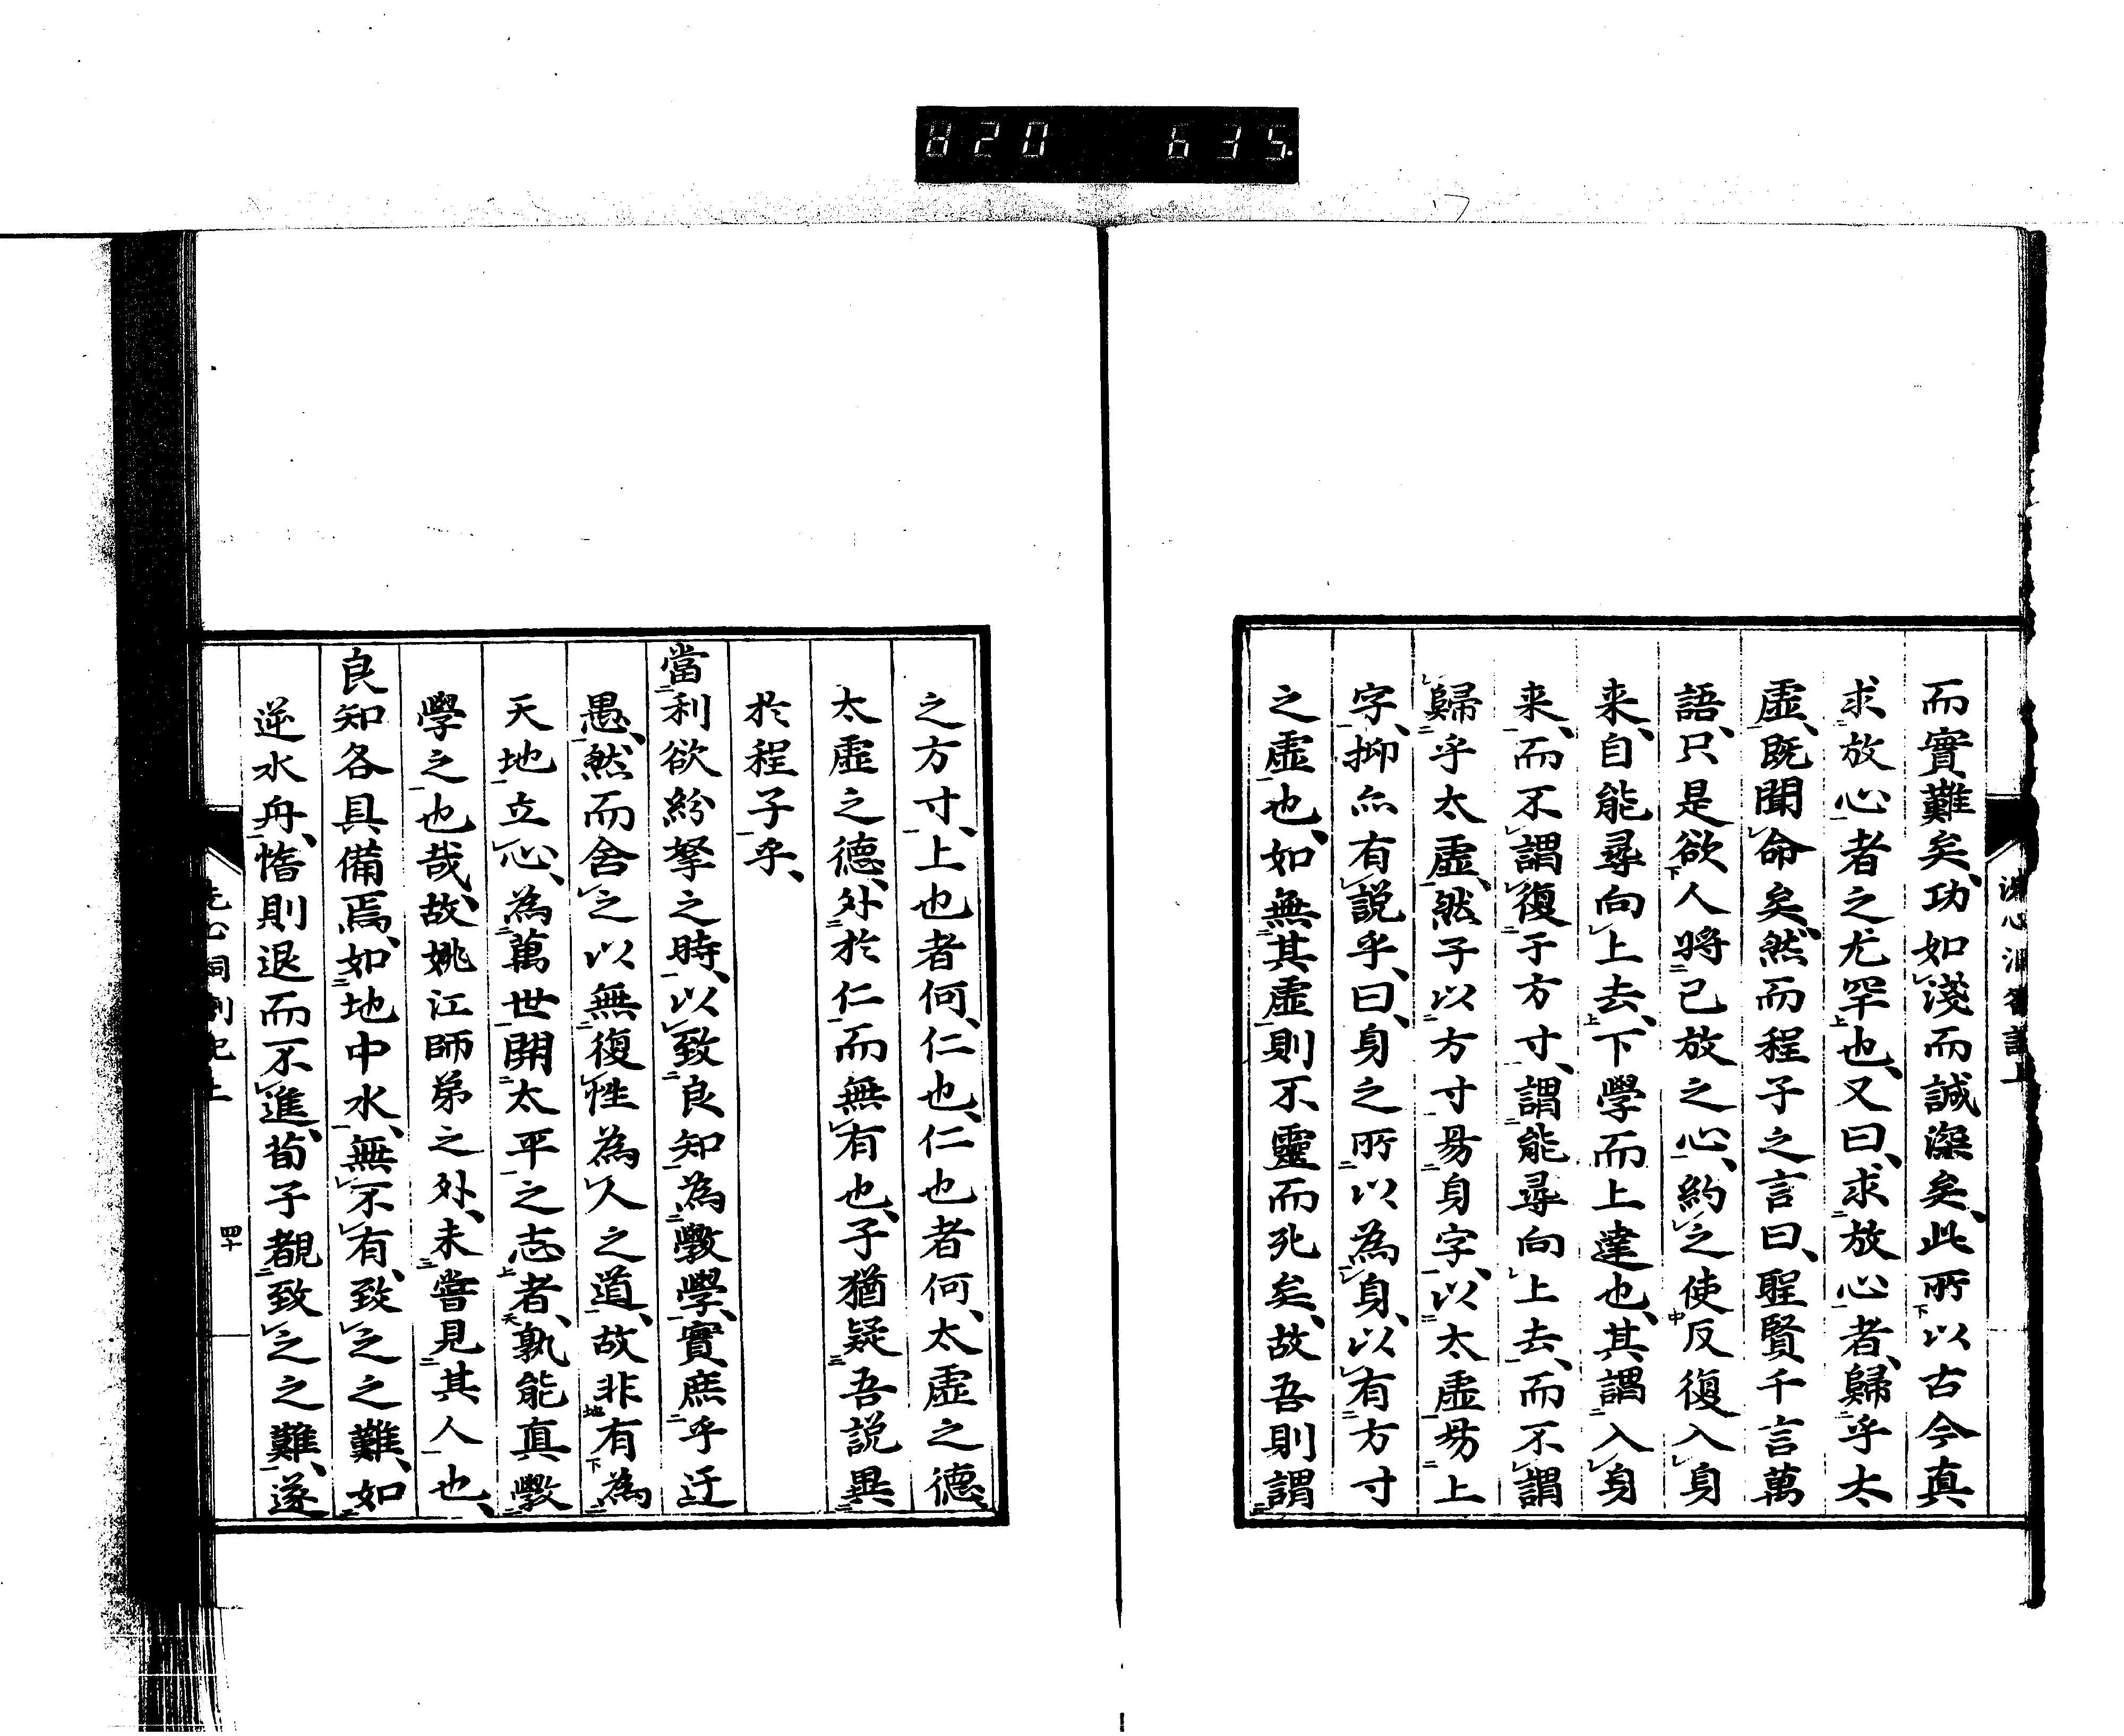 820 635.
洗心洞劄記上
而實難矣、功如淺而誠深矣、此所以古今真
求放心者之尤罕也、又曰、求放心者、歸乎太
虛、既聞命矣、然而程子之言曰、聖賢千言萬
語、只是欲人將己放之心、約之使反復入身
来、自能尋向上去、下學而上達也、其謂入身
来、而不謂復于方寸、謂能尋向上去、而不謂
歸乎太虛、然子以方寸易身字、以太虛易上
字、抑亦有説乎、曰、身之所以為身、以有方寸
之虛也、如無其虛則不靈而死矣、故吾則謂
之方寸、上也者何、仁也、仁也者何、太虛之德、
太虛之德、外於仁而無有也、子猶疑吾説異
於程子乎、
當利欲紛拏之時、以致良知為敎學、實庶乎迂
愚、然而舍之以無復性為人之道、故非有為
天地立心、為萬世開太平之志者、孰能真敎
學之也哉、故姚江師弟之外、未嘗見其人也、
良知各具備焉、如地中水、無不有、致之之難、如
逆水舟、惰則退而不進、荀子覩致之之難、遂
洗心洞劄記上
四十